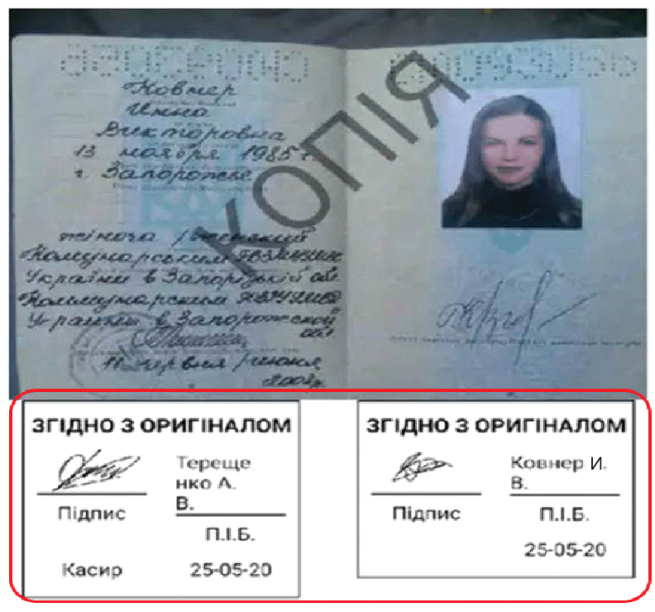 Ковнер
Инна
Викторовна
13 ноября 1985 г.
г. Запорожье
жіноча / женский
Комунарським РВ УМВС
України в Запорізькій обл.
Коммунарским РО УМВД
Украины в Запорожской
обл.
11 червня / июня
КОПІЯ
ЗГІДНО З ОРИГІНАЛОМ
Тереще
нко А.
В.
Підпис
П.І.Б.
Касир 25-05-20
ЗГІДНО З ОРИГІНАЛОМ
Ковнер И.
В.
Підпис
П.І.Б.
25-05-20